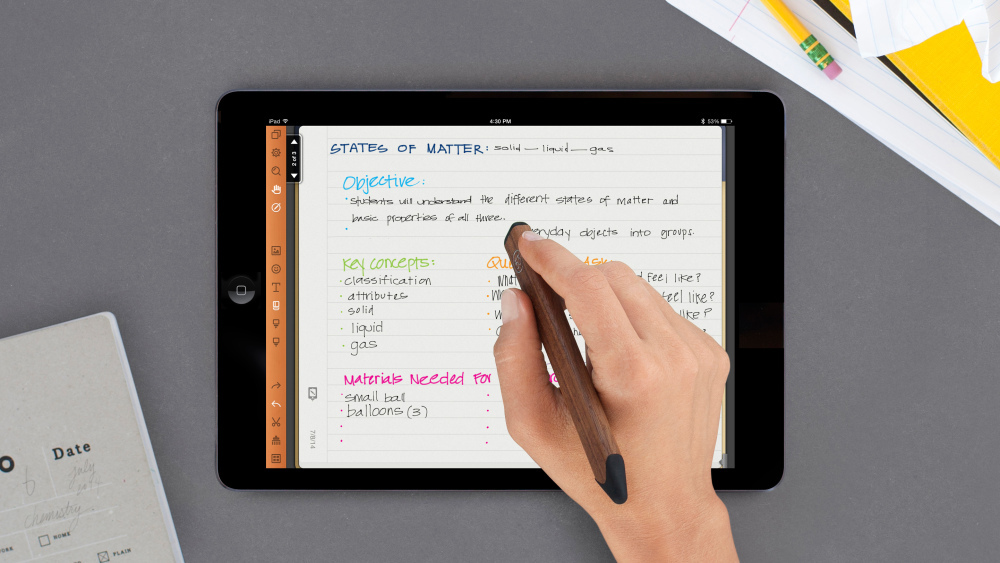 iPad 4:30 PM 53%
2 of 3
STATES OF MATTER: solid — liquid — gas
Objective:
Students will understand the different states of matter and
basic properties of all three.
objects into groups.
Key concepts:
classification
attributes
solid
liquid
gas
What feel like?
feel like?
like?
Materials Needed For
small ball
balloons (3)
7/8/14
Date
July
chemistry
HOME
PLAIN